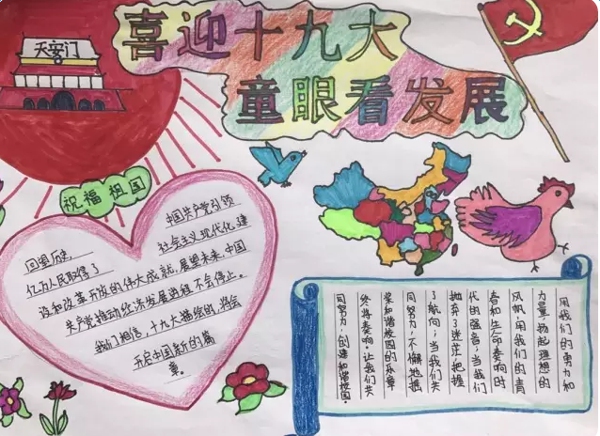 天安门
喜迎十九大
童眼看发展
祝福祖国
回望历史,
中国共产党引领
亿万人民取得了
社会主义现代化建
设和改革开放的伟大成就,展望未来,中国
共产党推动经济发展进程不会停止。
我们相信,十九大描绘的,将会
开启中国新的篇
章。
用我们的勇力和
力量,扬起理想的
风帆,用我们的青
春和生命奏响时
代的强音;当我们
抛弃了迷茫,把握
了航向;当我们共
同努力,不懈地摇
桨和谐校园的乐章
终将奏响。让我们共
同努力,创建和谐校园。